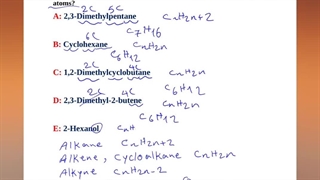 atoms?
2C 5C
A: 2,3-Dimethylpentane CnH2n+2
6C C7H16
B: Cyclohexane CnH2n
C6H12
2C 4C
C: 1,2-Dimethylcyclobutane CnH2n
2C 4C C6H12
D: 2,3-Dimethyl-2-butene CnH2n
C6H12
E: 2-Hexanol CnH
Alkane CnH2n+2
Alkene, Cycloalkane CnH2n
Alkyne CnH2n-2